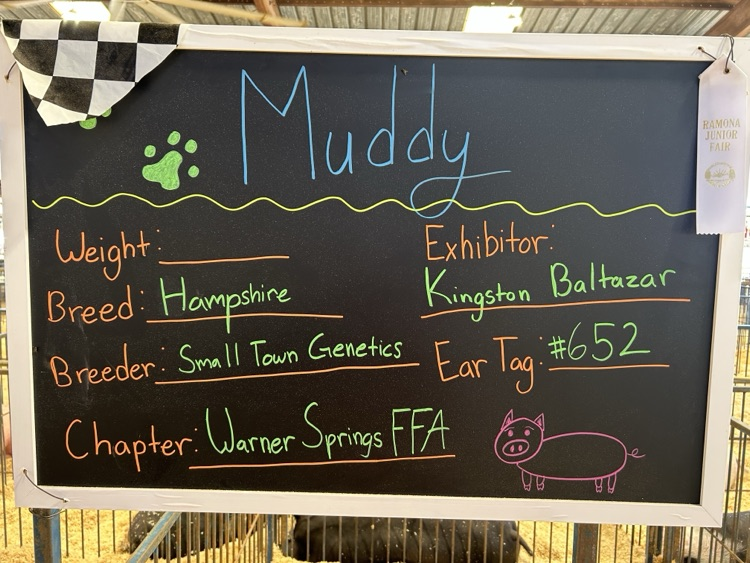 Muddy
RAMONA
JUNIOR
FAIR
Weight:
Exhibitor:
Kingston Baltazar
Breed: Hampshire
Breeder: Small Town Genetics
Ear Tag: #652
Chapter: Warner Springs FFA